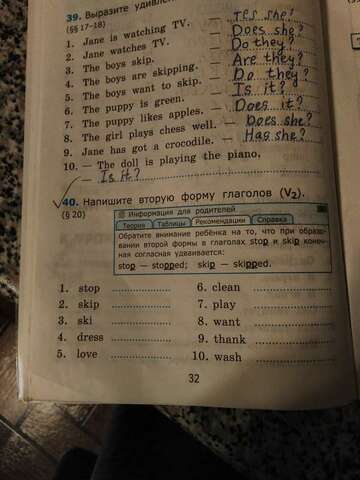 39. Выразите удивлен
(§§ 17–18)
1. Jane is watching TV. — Yes she?
2. Jane watches TV. — Does she?
3. The boys skip. — Do they?
4. The boys are skipping. — Are they?
5. The boys want to skip. — Do they?
6. The puppy is green. — Is it?
7. The puppy likes apples. — Does it?
8. The girl plays chess well. — Does she?
9. Jane has got a crocodile. — Has she?
10. — The doll is playing the piano.
— Is it?
40. Напишите вторую форму глаголов (V₂).
(§ 20)
Информация для родителей
Теория Таблицы Рекомендации Справка
Обратите внимание ребёнка на то, что при образо-
вании второй формы в глаголах stop и skip конеч-
ная согласная удваивается:
stop — stopped; skip — skipped.
1. stop 6. clean
2. skip 7. play
3. ski 8. want
4. dress 9. thank
5. love 10. wash
32